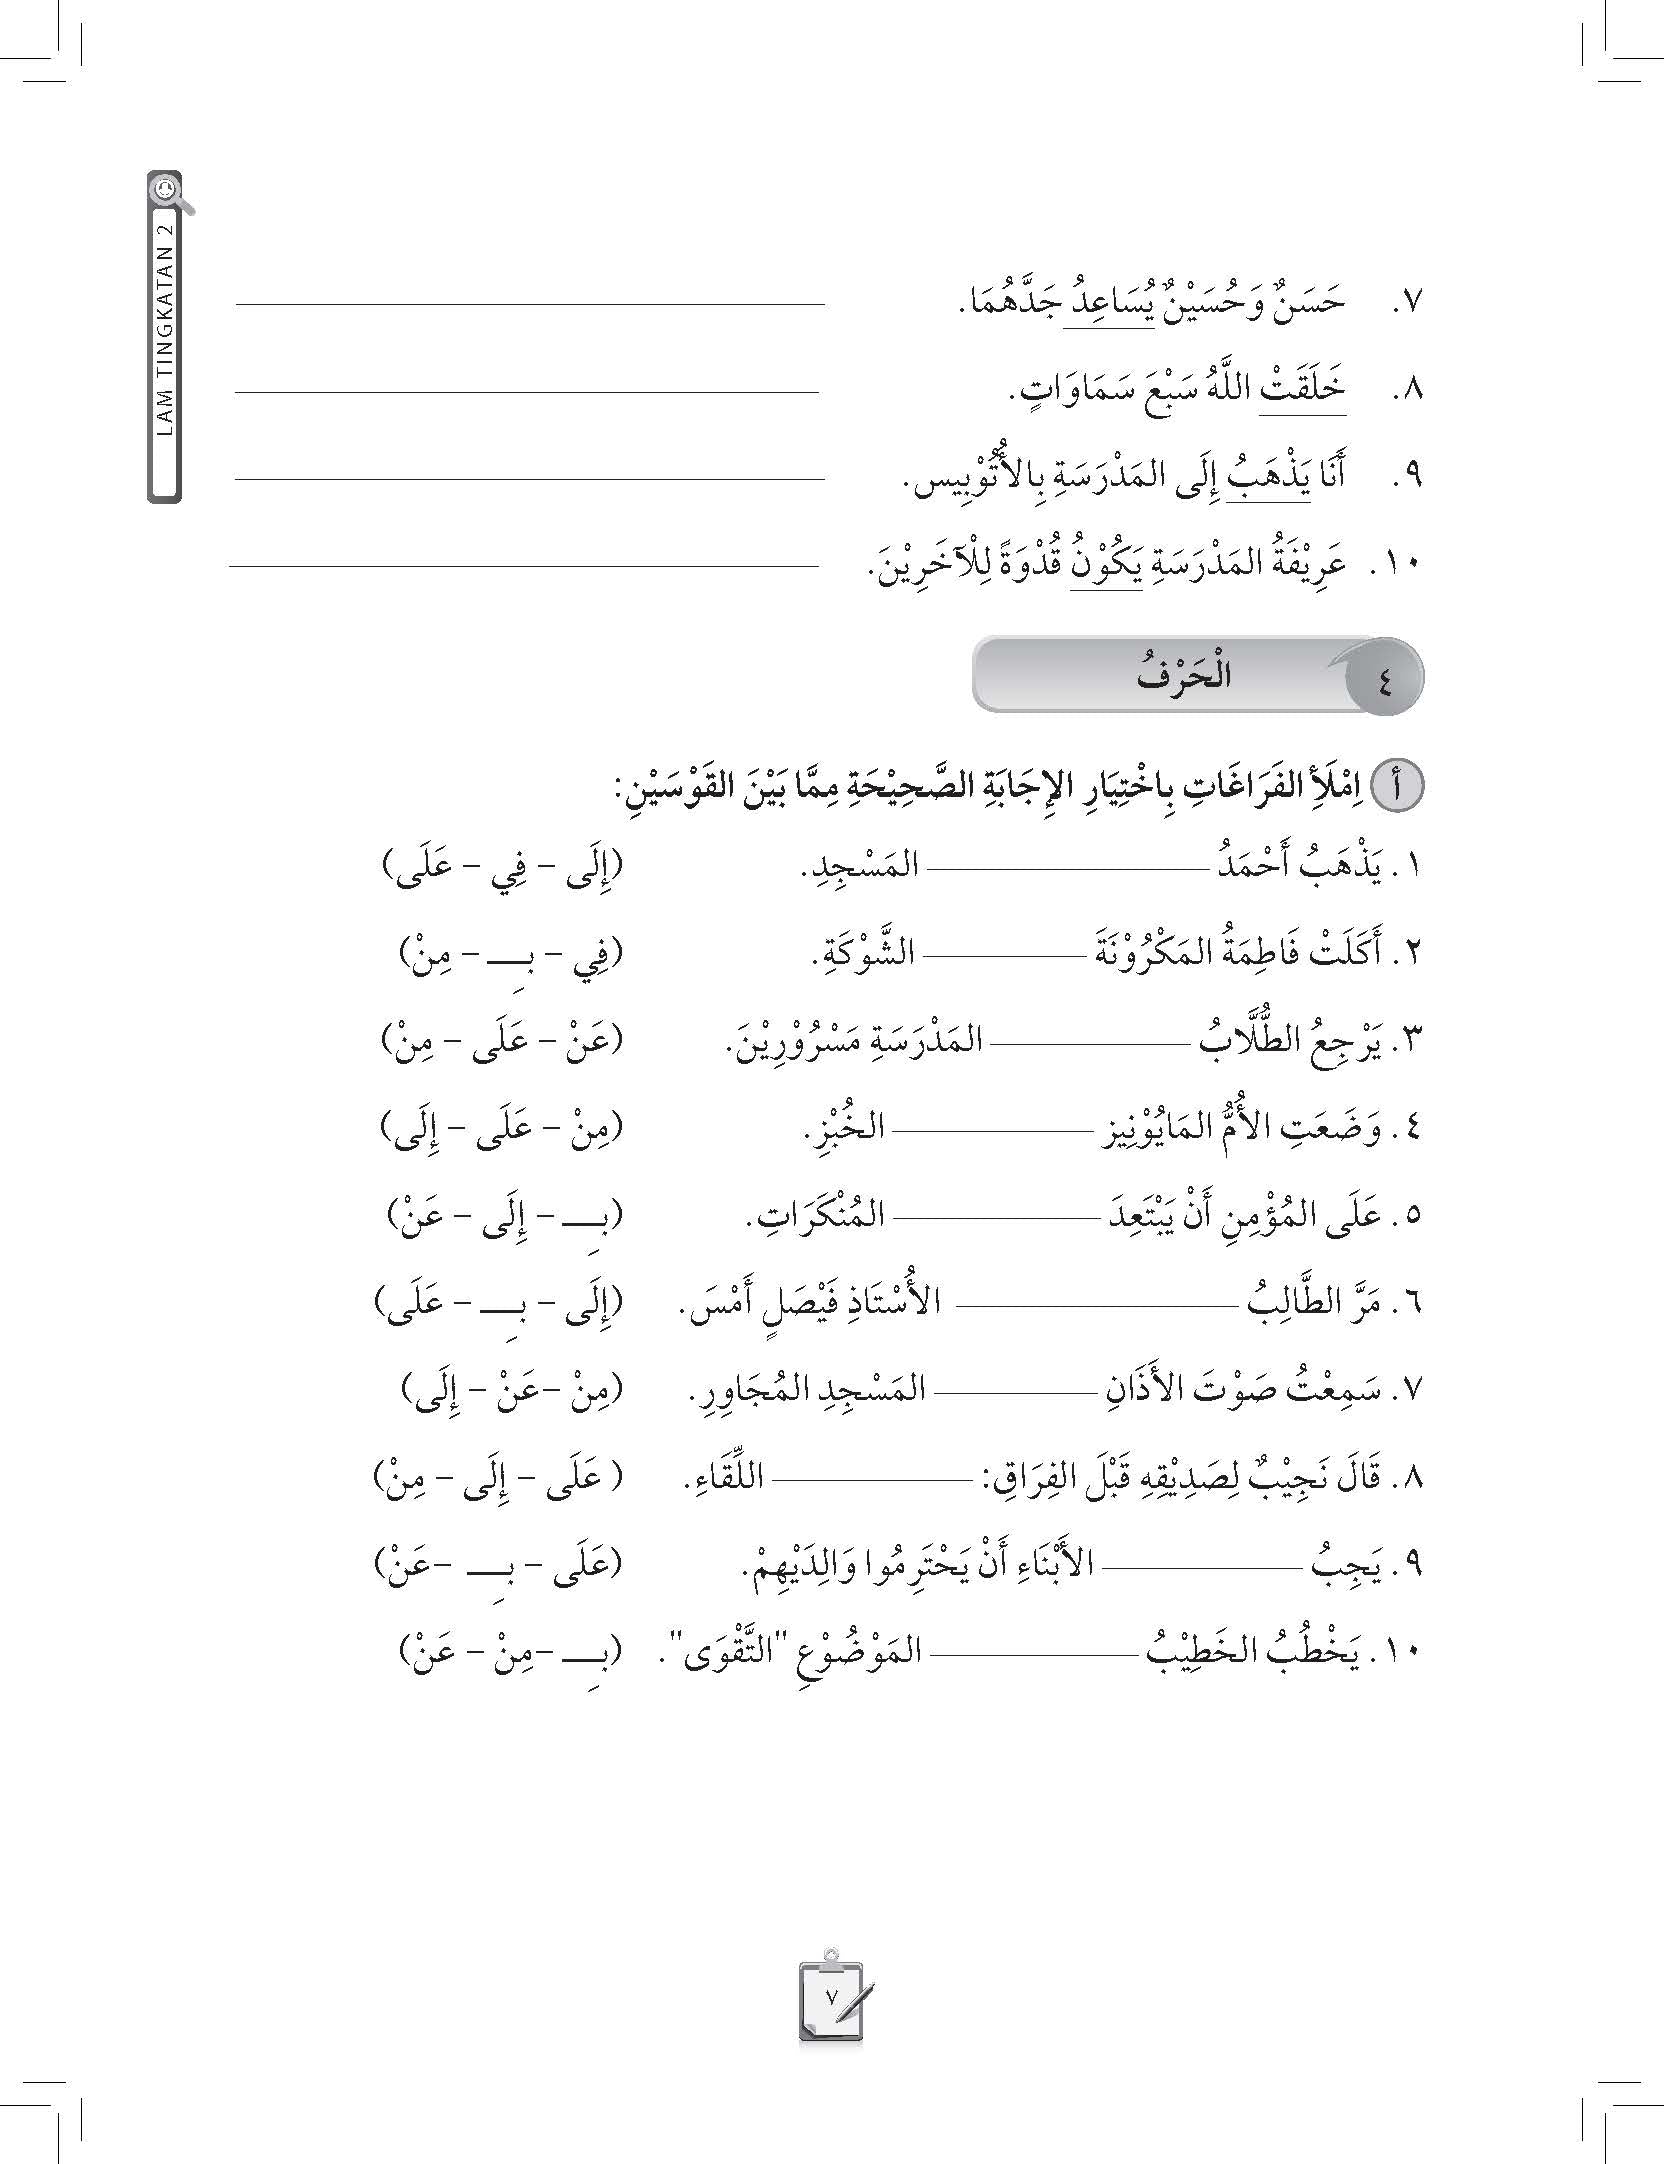 LAM TINGKATAN 2
٧. حَسَنٌ وَحُسَيْنٌ يُسَاعِدُ جَدَّهُمَا. ____________
٨. خَلَقَتْ اللَّهُ سَبْعَ سَمَاوَاتٍ. ____________
٩. أَنَا يَذْهَبُ إِلَى المَدْرَسَةِ بِالأُتُوْبِيس. ____________
١٠. عَرِيْفَةُ المَدْرَسَةِ يَكُوْنُ قُدْوَةً لِلْآخَرِيْنَ. ____________
٤ الْحَرْفُ
أ اِمْلَأِ الفَرَاغَاتِ بِاخْتِيَارِ الإِجَابَةِ الصَّحِيْحَةِ مِمَّا بَيْنَ القَوْسَيْنِ:
١. يَذْهَبُ أَحْمَدُ ____________ المَسْجِدِ. (إِلَى – فِي – عَلَى)
٢. أَكَلَتْ فَاطِمَةُ المَكْرُوْنَةَ ____________ الشَّوْكَةِ. (فِي – بِـــ – مِنْ)
٣. يَرْجِعُ الطُّلَّابُ ____________ المَدْرَسَةِ مَسْرُوْرِيْنَ. (عَنْ – عَلَى – مِنْ)
٤. وَضَعَتِ الأُمُّ المَايُوْنِيز ____________ الخُبْزِ. (مِنْ – عَلَى – إِلَى)
٥. عَلَى المُؤْمِنِ أَنْ يَبْتَعِدَ ____________ المُنْكَرَاتِ. (بِـــ – إِلَى – عَنْ)
٦. مَرَّ الطَّالِبُ ____________ الأُسْتَاذِ فَيْصَلٍ أَمْسَ. (إِلَى – بِـــ – عَلَى)
٧. سَمِعْتُ صَوْتَ الأَذَانِ ____________ المَسْجِدِ المُجَاوِرِ. (مِنْ –عَنْ – إِلَى)
٨. قَالَ نَجِيْبٌ لِصَدِيْقِهِ قَبْلَ الفِرَاقِ: ____________ اللِّقَاءِ. ( عَلَى – إِلَى – مِنْ)
٩. يَجِبُ ____________ الأَبْنَاءِ أَنْ يَحْتَرِمُوا وَالِدَيْهِمْ. (عَلَى – بِـــ –عَنْ)
١٠. يَخْطُبُ الخَطِيْبُ ____________ المَوْضُوْعِ "التَّقْوَى". (بِـــ –مِنْ – عَنْ)
٧